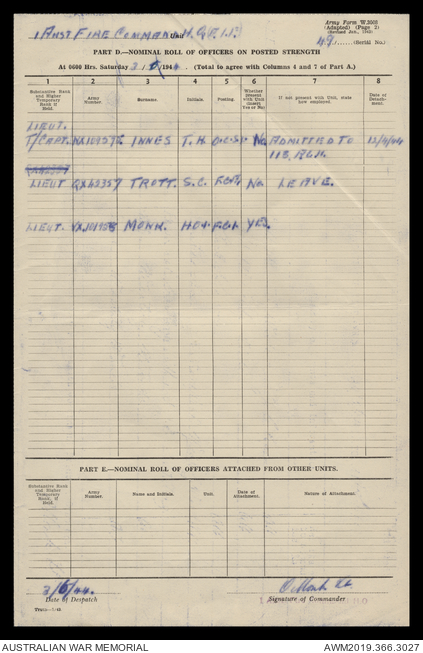 Army Form W.3008
(Adapted) (Page 2)
(Revised Jan., 1943)
1 AUST FIRE COMMAND H.Q. Unit
49 (Serial No.)
PART D.—NOMINAL ROLL OF OFFICERS ON POSTED STRENGTH
At 0600 Hrs. Saturday /194 . (Total to agree with Columns 4 and 7 of Part A.)
1 2 3 4 5 6 7 8
Substantive Rank and Higher Temporary Rank if Held.
Army Number.
Surname.
Initials.
Posting.
Whether present with Unit (insert Yes or No)
If not present with Unit, state how employed.
Date of Detachment.
LIEUT.
T/CAPT. INNES T. H. No ADMITTED TO
115 A.G.H.
LIEUT QX42357 TROTT. S. C. No. LEAVE.
LIEUT. MONK. YES
PART E.—NOMINAL ROLL OF OFFICERS ATTACHED FROM OTHER UNITS.
Substantive Rank and Higher Temporary Rank, if Held.
Army Number.
Name and Initials.
Unit.
Date of Attachment.
Nature of Attachment.
3/6/44.
Date of Despatch
Signature of Commander
AUSTRALIAN WAR MEMORIAL
AWM2019.366.3027